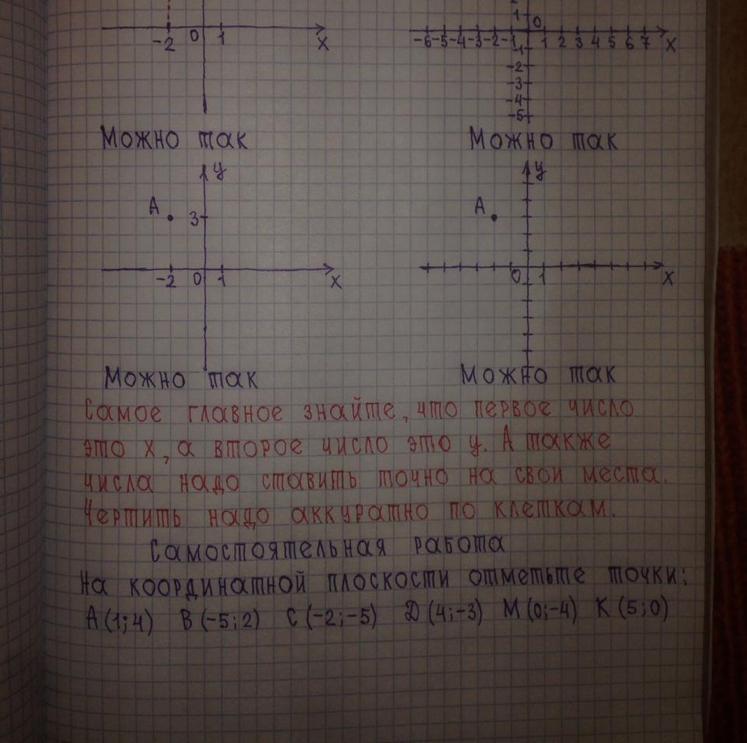 1 0
-2 0 1 x
-6 -5 -4 -3 -2 -1 1 2 3 4 5 6 7 x
-1
-2
-3
-4
-5
Можно так
Можно так
y
A
3
-2 0 1 x
y
A
0 1 x
Можно так
Можно так
Самое главное знайте, что первое число
это x, а второе число это y. А также
числа надо ставить точно на свои места.
Чертить надо аккуратно по клеткам.
Самостоятельная работа
На координатной плоскости отметьте точки:
A(1;4) B(-5;2) C(-2;-5) D(4;-3) M(0;-4) K(5;0)